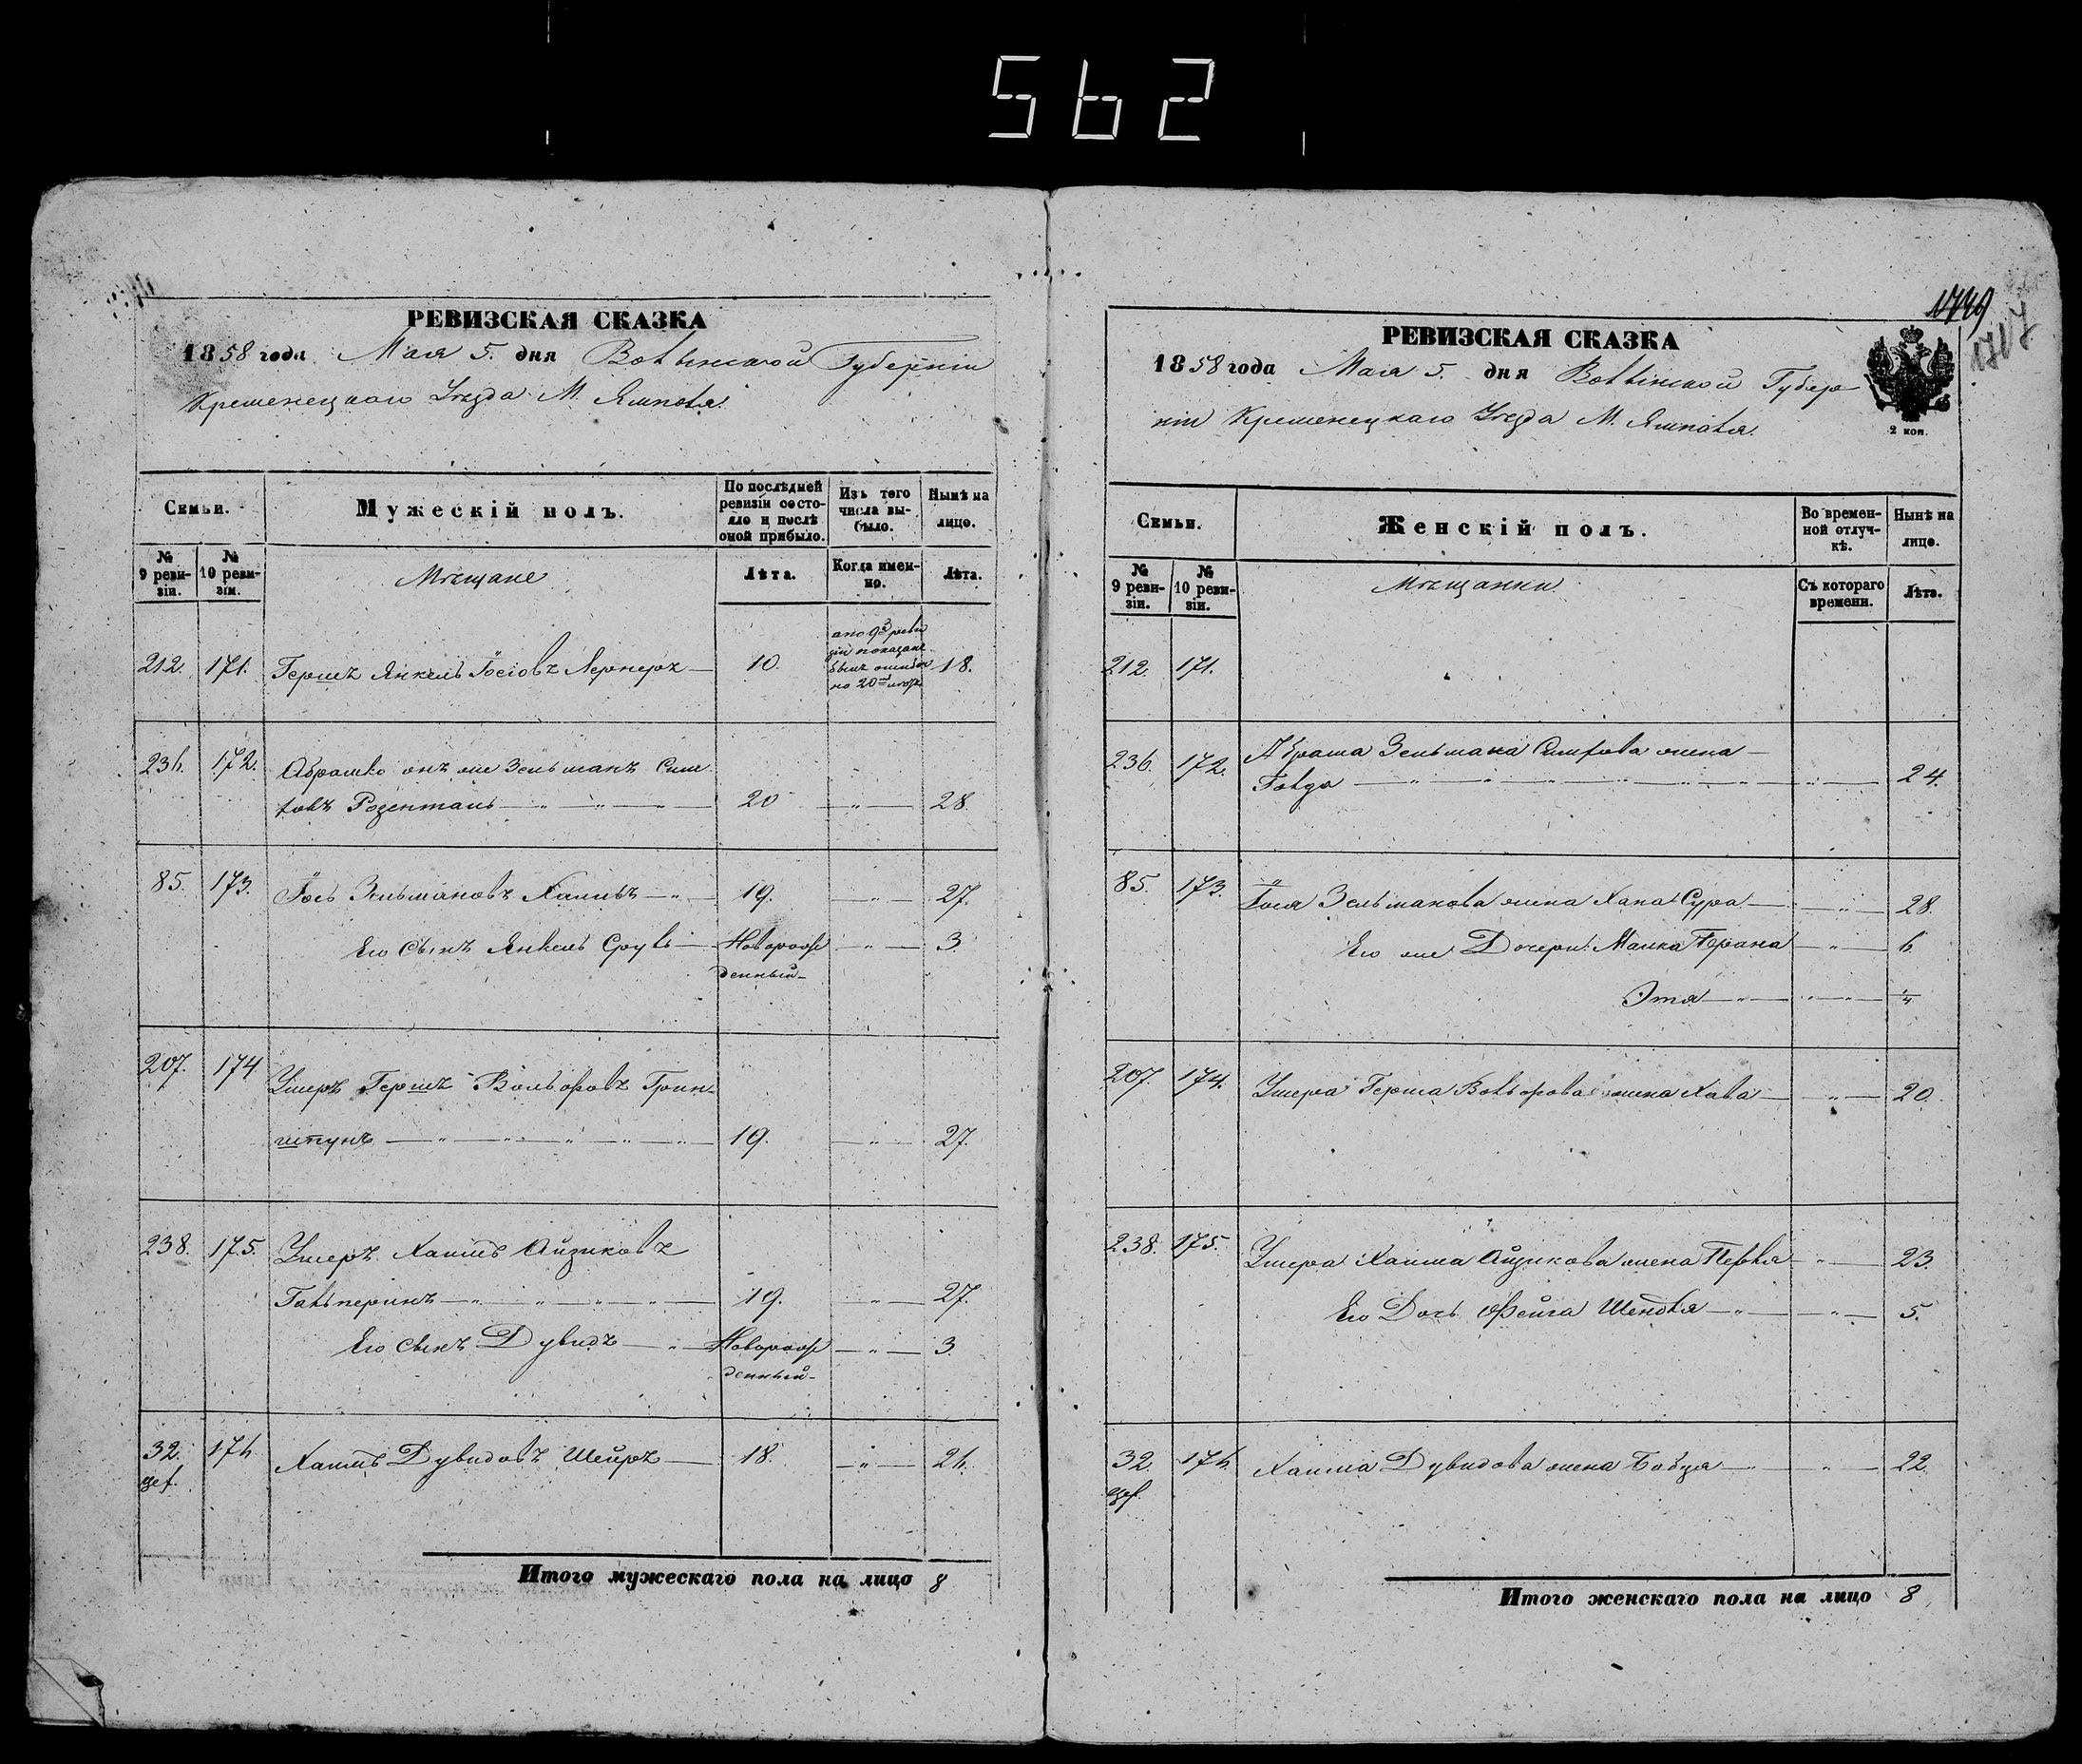 562
РЕВИЗСКАЯ СКАЗКА
1858 года Мая 5. дня Волынской Губерніи
Кременецкаго Уѣзда М. Ямполя.
Семьи.
Мужескій полъ.
По послѣдней ревизіи состояло и послѣ оной прибыло.
Изъ того числа выбыло.
Нынѣ на лицо.
№ 9 ревизіи.
№ 10 ревизіи.
Мѣщане
Лѣта.
Когда именно.
Лѣта.
212. 171. Гершъ Янкель Іосіовъ Лернеръ — 10. а по 9й ревизіи показанъ былъ ошибочно 20 18.
236. 172. Абрамко онъ же Зельманъ Сим
ховъ Розенталь — " — " — " — 20 — " — 28.
85. 173. Іось Зельмановъ Халипъ — " — 19. — " — 27.
Его Сынъ Янкель Сруль — Новорож — " — 3.
денный —
207. 174 Ушеръ Гершъ Вольфовъ Грин
штунъ — " — " — " — " — " — 19. — " — 27.
238. 175. Ушеръ Хаимъ Айзиковъ
Гальперинъ — " — " — " — " — 19. — " — 27.
Его сынъ Дувидъ — " — Новорож — " — 3.
денный —
32. 176 Хаимъ Дувидовъ Шейръ — 18. — " — 26.
Итого мужескаго пола на лицо 8
1749
1717
РЕВИЗСКАЯ СКАЗКА
1858 года Мая 5. дня Волынской Губер
ніи Кременецкаго Уѣзда М. Ямполя.
2 коп.
Семьи.
Женскій полъ.
Во временной отлучкѣ.
Нынѣ на лицо.
№ 9 ревизіи.
№ 10 ревизіи.
Мѣщанки.
Съ котораго времени.
Лѣта.
212. 171.
236. 172. Абрама Зельмана Симхова жена —
Голда — " — " — " — " — " — " — 24.
85. 173. Іося Зельманова жена Хана Сура — " — 28.
Его же Дочери: Малка Перана — " — 6.
Этя — " — " — 1/4
207. 174. Ушера Герша Вольфова жена Хава — " — 20.
238. 175. Ушера Хаима Айзикова жена Перля — " — 23.
Его Дочь Фейга Шендля — " — " — 5.
32. 176. Хаима Дувидова жена Бобця — " — 22.
Итого женскаго пола на лицо 8